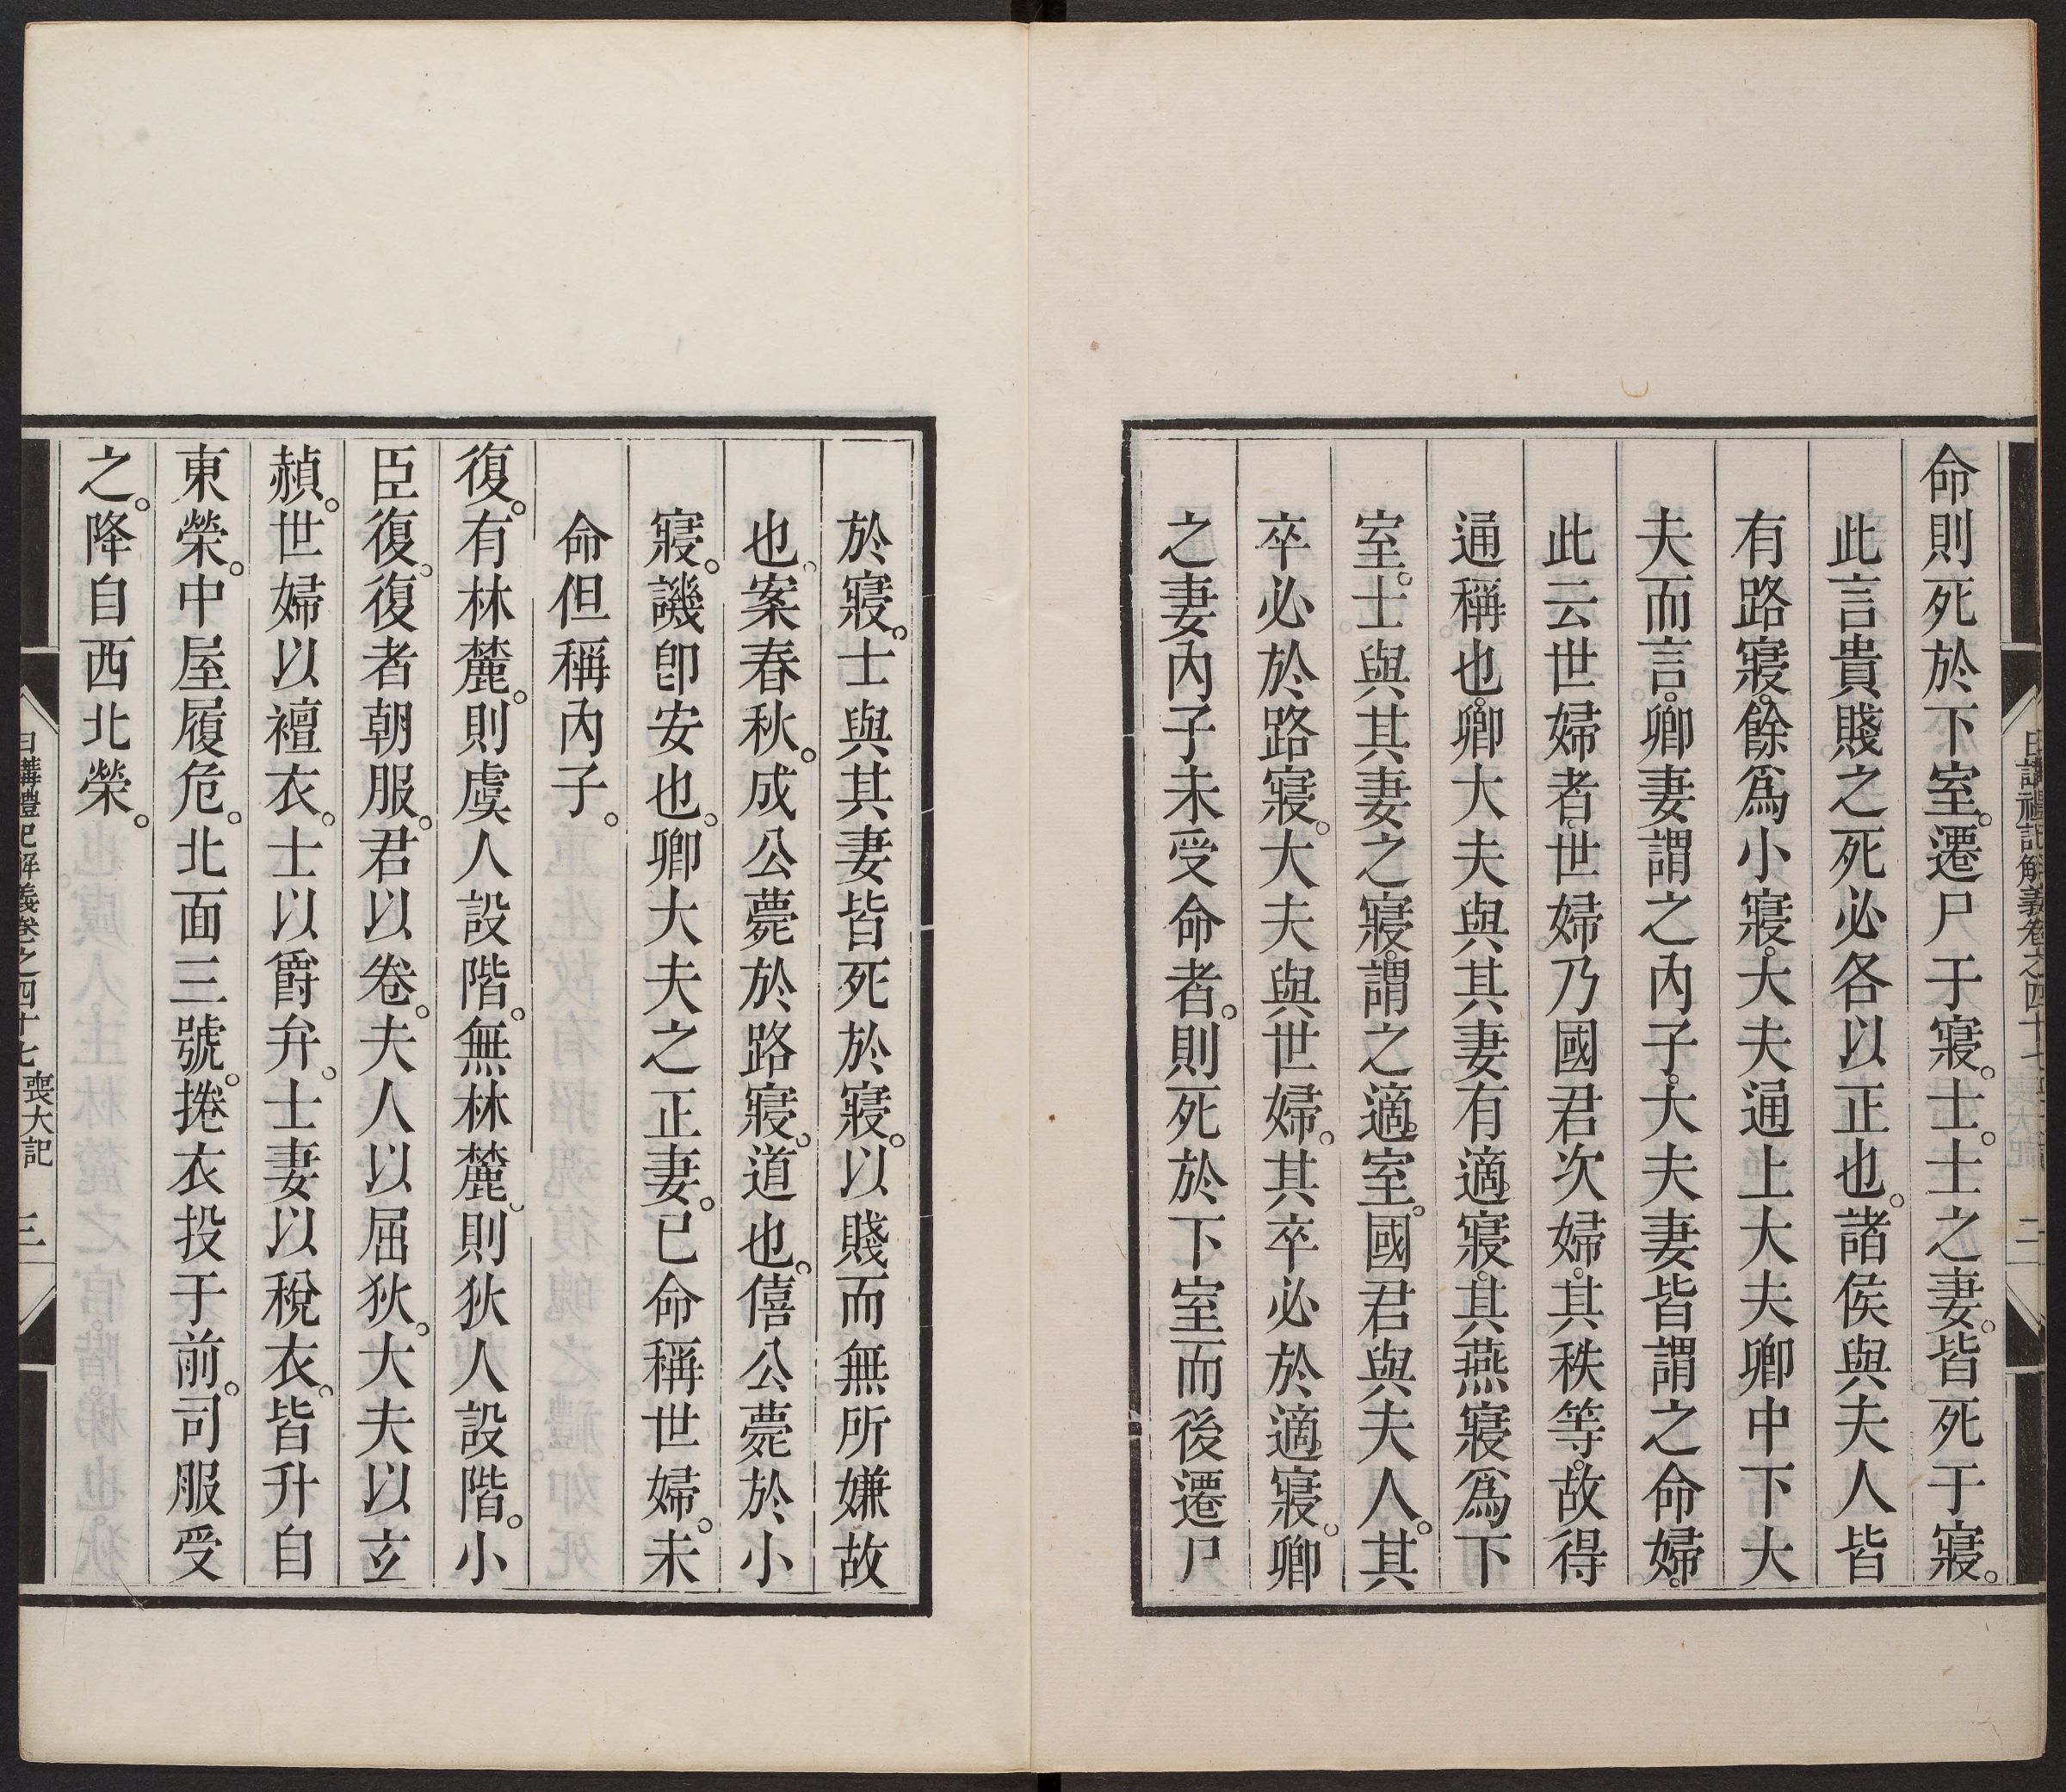 命則死於下室。遷尸于寢。士。士之妻。皆死于寢。
此言貴賤之死必各以正也。諸侯與夫人皆
有路寢。餘爲小寢。大夫通上大夫卿中下大
夫而言。卿妻謂之內子。大夫妻皆謂之命婦。
此云世婦者。世婦乃國君次婦。其秩等。故得
通稱也。卿大夫與其妻有適寢。其燕寢爲下
室。士與其妻之寢。謂之適室。國君與夫人。其
卒必於路寢。大夫與世婦。其卒必於適寢。卿
之妻內子未受命者。則死於下室而後遷尸
於寢。士與其妻皆死於寢。以賤而無所嫌故
也。案春秋。成公薨於路寢。道也。僖公薨於小
寢。譏卽安也。卿大夫之正妻。已命稱世婦。未
命但稱內子。
復。有林麓。則虞人設階。無林麓。則狄人設階。小
臣復。復者朝服。君以卷。夫人以屈狄。大夫以玄
赬。世婦以襢衣。士以爵弁。士妻以稅衣。皆升自
東榮。中屋履危。北面三號。捲衣投于前。司服受
之。降自西北榮。
日講禮記解義卷之四十七 喪大記 三
日講禮記解義卷之四十七 喪大記 二